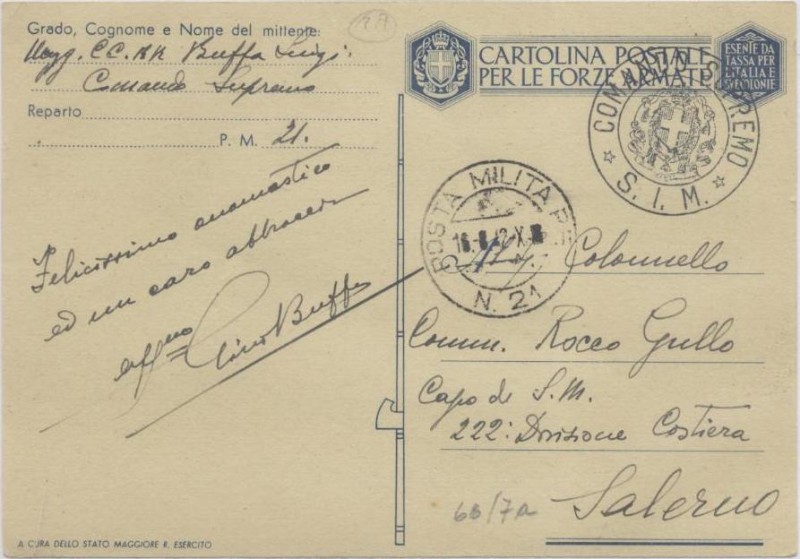 Grado, Cognome e Nome del mittente:
Magg. CC.RR Buffa Luigi
Comando Supremo
Reparto
P. M. 21.
Felicissimo onomastico
ed un caro abbraccio
aff.mo Gino Buffa
CARTOLINA POSTALE
PER LE FORZE ARMATE
ESENTE DA
TASSA PER
L'ITALIA E
LE COLONIE
COMANDO SUPREMO
S. I. M.
POSTA MILITARE
16.-8.42-X
N. 21
Colonnello
Comm. Rocco Grillo
Capo di S. M.
222ª Divisione Costiera
Salerno
6B/7a
A CURA DELLO STATO MAGGIORE R. ESERCITO